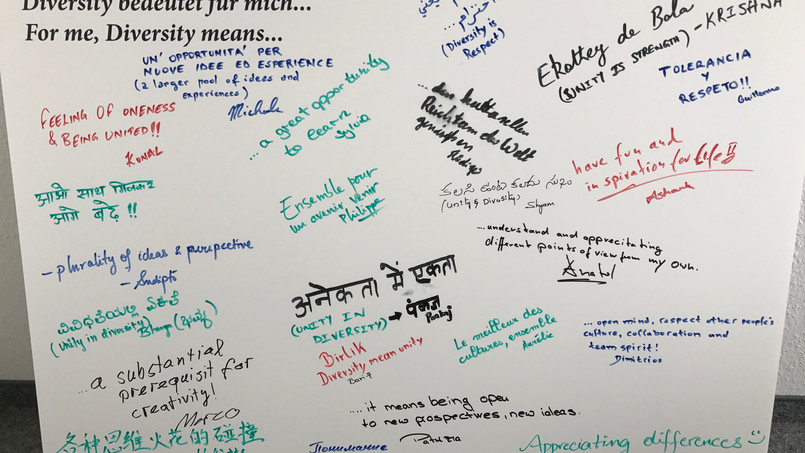 Diversity bedeutet für mich...
For me, Diversity means...
UN' OPPORTUNITA' PER
NUOVE IDEE ED ESPERIENCE
(a larger pool of ideas and
experiences)
Michele
FEELING OF ONENESS
& BEING UNITED!!
KOMAL
...a great opportunity
to learn
Sylvia
(Diversity is
Respect)
Ekottey de Bola
(UNITY IS STRENGTH) - KRISHNA
TOLERANCIA
Y
RESPETO!!
Guillermo
...den kulturellen
Reichtum der Welt
genießen
have fun and
inspiration for life!!
आओ साथ मिलकर
आगे बढ़े !!
Ensemble pour
un avenir venir
Philippe
కలసి ఉంటే కలదు సుఖం
(Unity & Diversity)
Shyam
- plurality of ideas & perspective
- Sudipto
...understand and apprecitating
different points of view from my own.
अनेकता में एकता
(UNITY IN
DIVERSITY) → पंकज
Pankaj
ವಿವಿಧತೆಯಲ್ಲಿ ಏಕತೆ
(Unity in diversity)
Birlik
Diversity mean unity
Le meilleur des
cultures, ensemble
Aurélie
... open mind, respect other people's
culture, collaboration and
team spirit!
Dimitrios
...a substantial
prerequisit for
creativity!
Marco
....it means being open
to new prospectives, new ideas.
Patrizia
各种思维火花的碰撞
Понимание
Appreciating differences